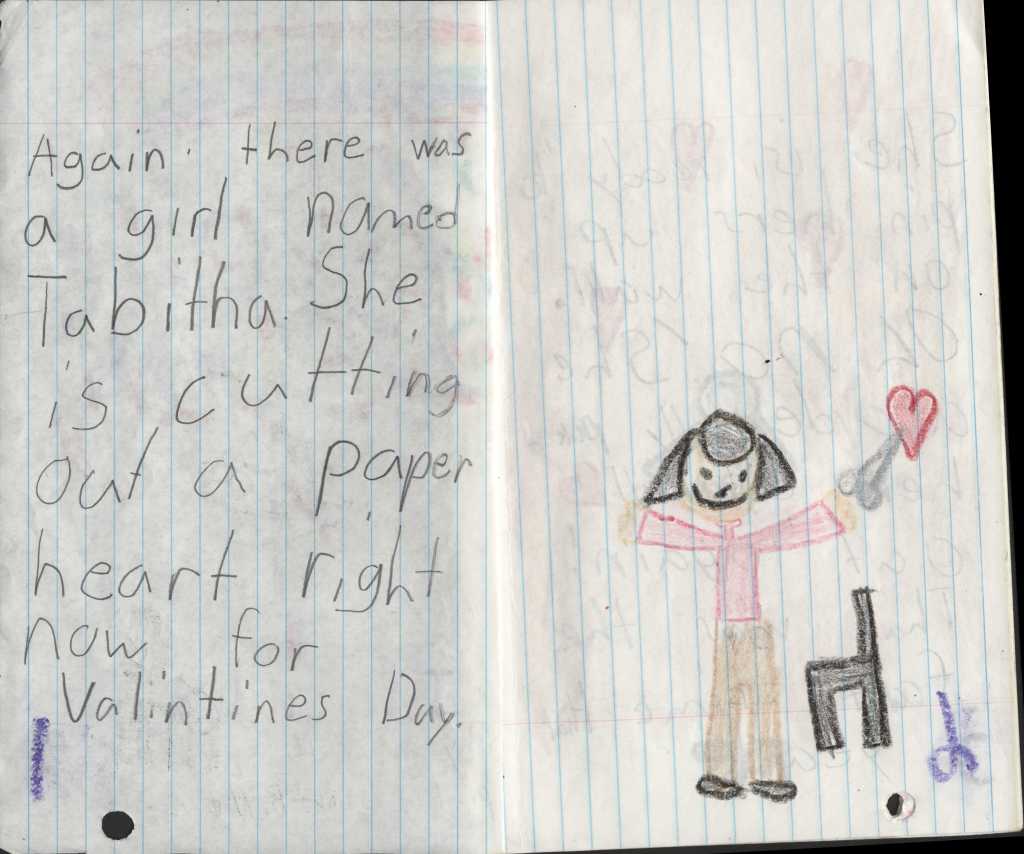 Again. there was
a girl named
Tabitha. She
is cutting
out a paper
heart right
now for
Valintines Day.
1
2